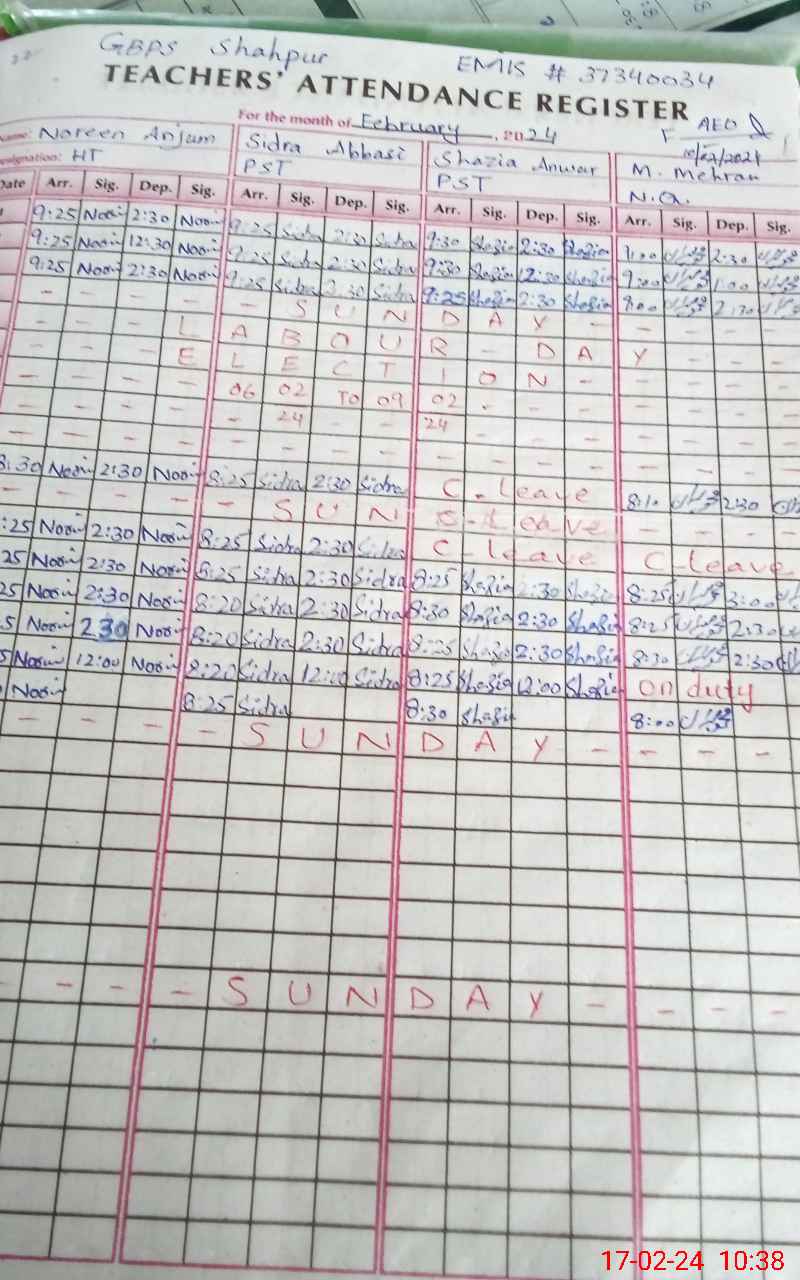 GBPS Shahpur EMIS # 37340034
TEACHERS' ATTENDANCE REGISTER
For the month of February, 2024 AEO
Name: Noreen Anjum Sidra Abbasi Shazia Anwar M. Mehran
Designation: HT PST PST N.Q.
Date Arr. Sig. Dep. Sig. Arr. Sig. Dep. Sig. Arr. Sig. Dep. Sig. Arr. Sig. Dep. Sig.
9:25 2:30 9:25 Sidra 2:30 Sidra 9:30 Shazia 2:30 Shazia 9:00 2:30
9:25 12:30 9:25 Sidra 2:30 Sidra 9:30 Shazia 12:30 Shazia 9:00 1:00
9:25 2:30 9:25 Sidra 2:30 Sidra 9:25 Shazia 2:30 Shazia 9:00 2:30
- - - - - - S U N D A Y - - - - -
- - - L A B O U R - D A Y - - -
- - - E L E C T I O N - - - - -
- - - - 06 02 TO 09 02 - - - - - - -
- - - - - 24 - - 24 - - - - - - -
8:30 2:30 8:25 Sidra 2:30 Sidra C-leave 8:10 2:30
- - - - - S U N C-Leave - - - -
:25 2:30 8:25 Sidra 2:30 Sidra C-leave C-leave
25 2:30 8:25 Sidra 2:30 Sidra 8:25 Shazia 2:30 Shazia 8:25 3:00
25 2:30 8:20 Sidra 2:30 Sidra 8:30 Shazia 2:30 Shazia 8:25 2:30
5 230 8:20 Sidra 2:30 Sidra 8:25 Shazia 2:30 Shazia 8:30 2:30
5 12:00 8:20 Sidra 12:00 Sidra 8:25 Shazia 12:00 Shazia on duty
8:25 Sidra 8:30 Shazia 8:00
- - - - S U N D A Y - - - - -
- - - - S U N D A Y - - - - -
17-02-24 10:38